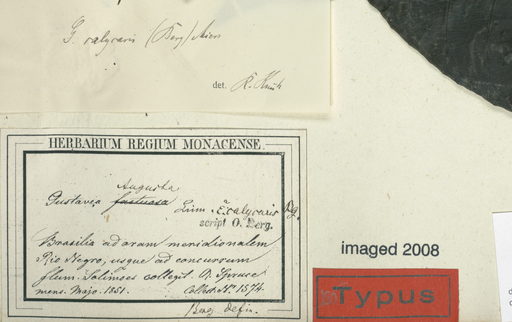 G. calycaris (Berg) Miers
det. R. Knuth
HERBARIUM REGIUM MONACENSE.
Augusta
Gustavia fastuosa Linn. ε. calycaris Bg.
script O. Berg.
Brasilia ad oram meridionalem
Rio Negro, usque ad concursum
flum. Solimoes collegit R. Spruce
mens. Majo. 1851. Collect. Nr. 1574.
Berg defin.
imaged 2008
Typus